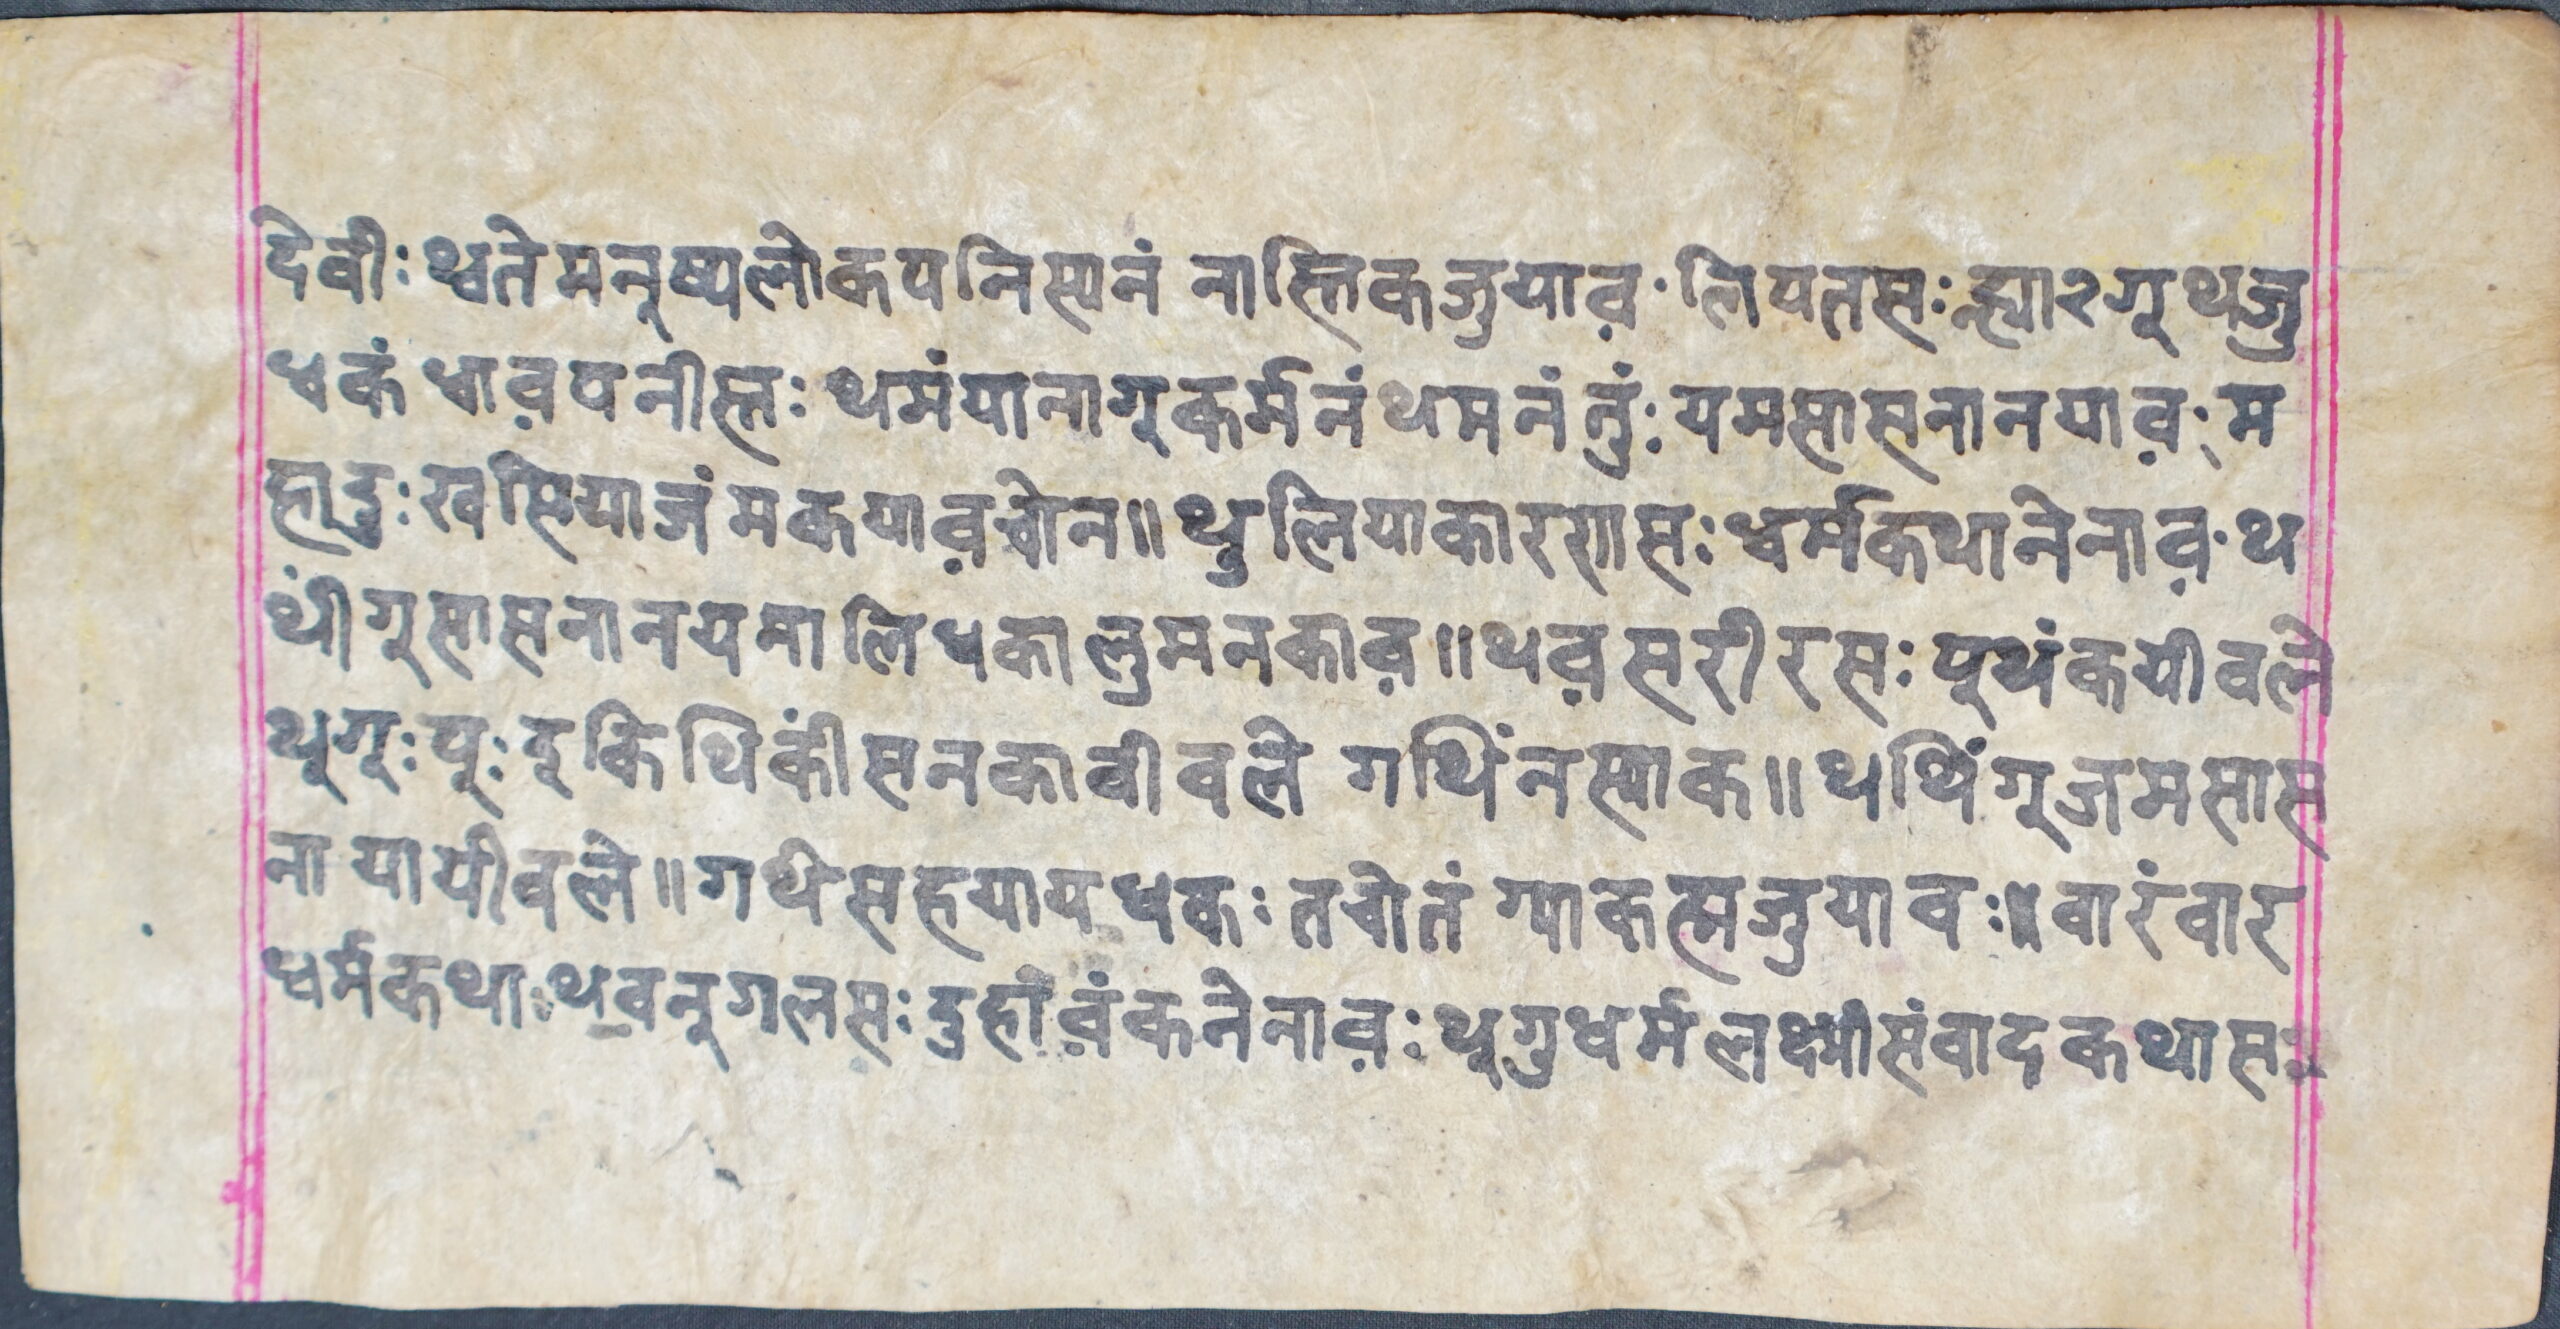 देवीः थ्वते मनूष्यलोकपनिस्यनं नास्तिकजुयाव़·लिपतसः ह्या२गूथजु
धकं धाव़पनीस्तः थमंयानागूकर्मनं थमनं नुंः यमसासनानयाव़ः म
हादुःखसियाजंमकयाव़चोन॥ थुलियाकारणसः धर्मकथानेनाव़·थ
थींगूसासनानयमालिधकालुमनकाव़॥ थव़सरीरसः पूथंकयीवले
थूगूः पूः दूकिथिंकींसनकावीवले गथिंनस्याक॥ थथिंगूजमसास
नायायीवले॥ गथेसहयायधकः तचोतं ग्याकह्मजुयावः॥ वारंवार
धर्मकथाः थवनूगलसः दुहांव़ंकनेनाव़ः थूगुधर्मलक्ष्मीसंवादकथासः